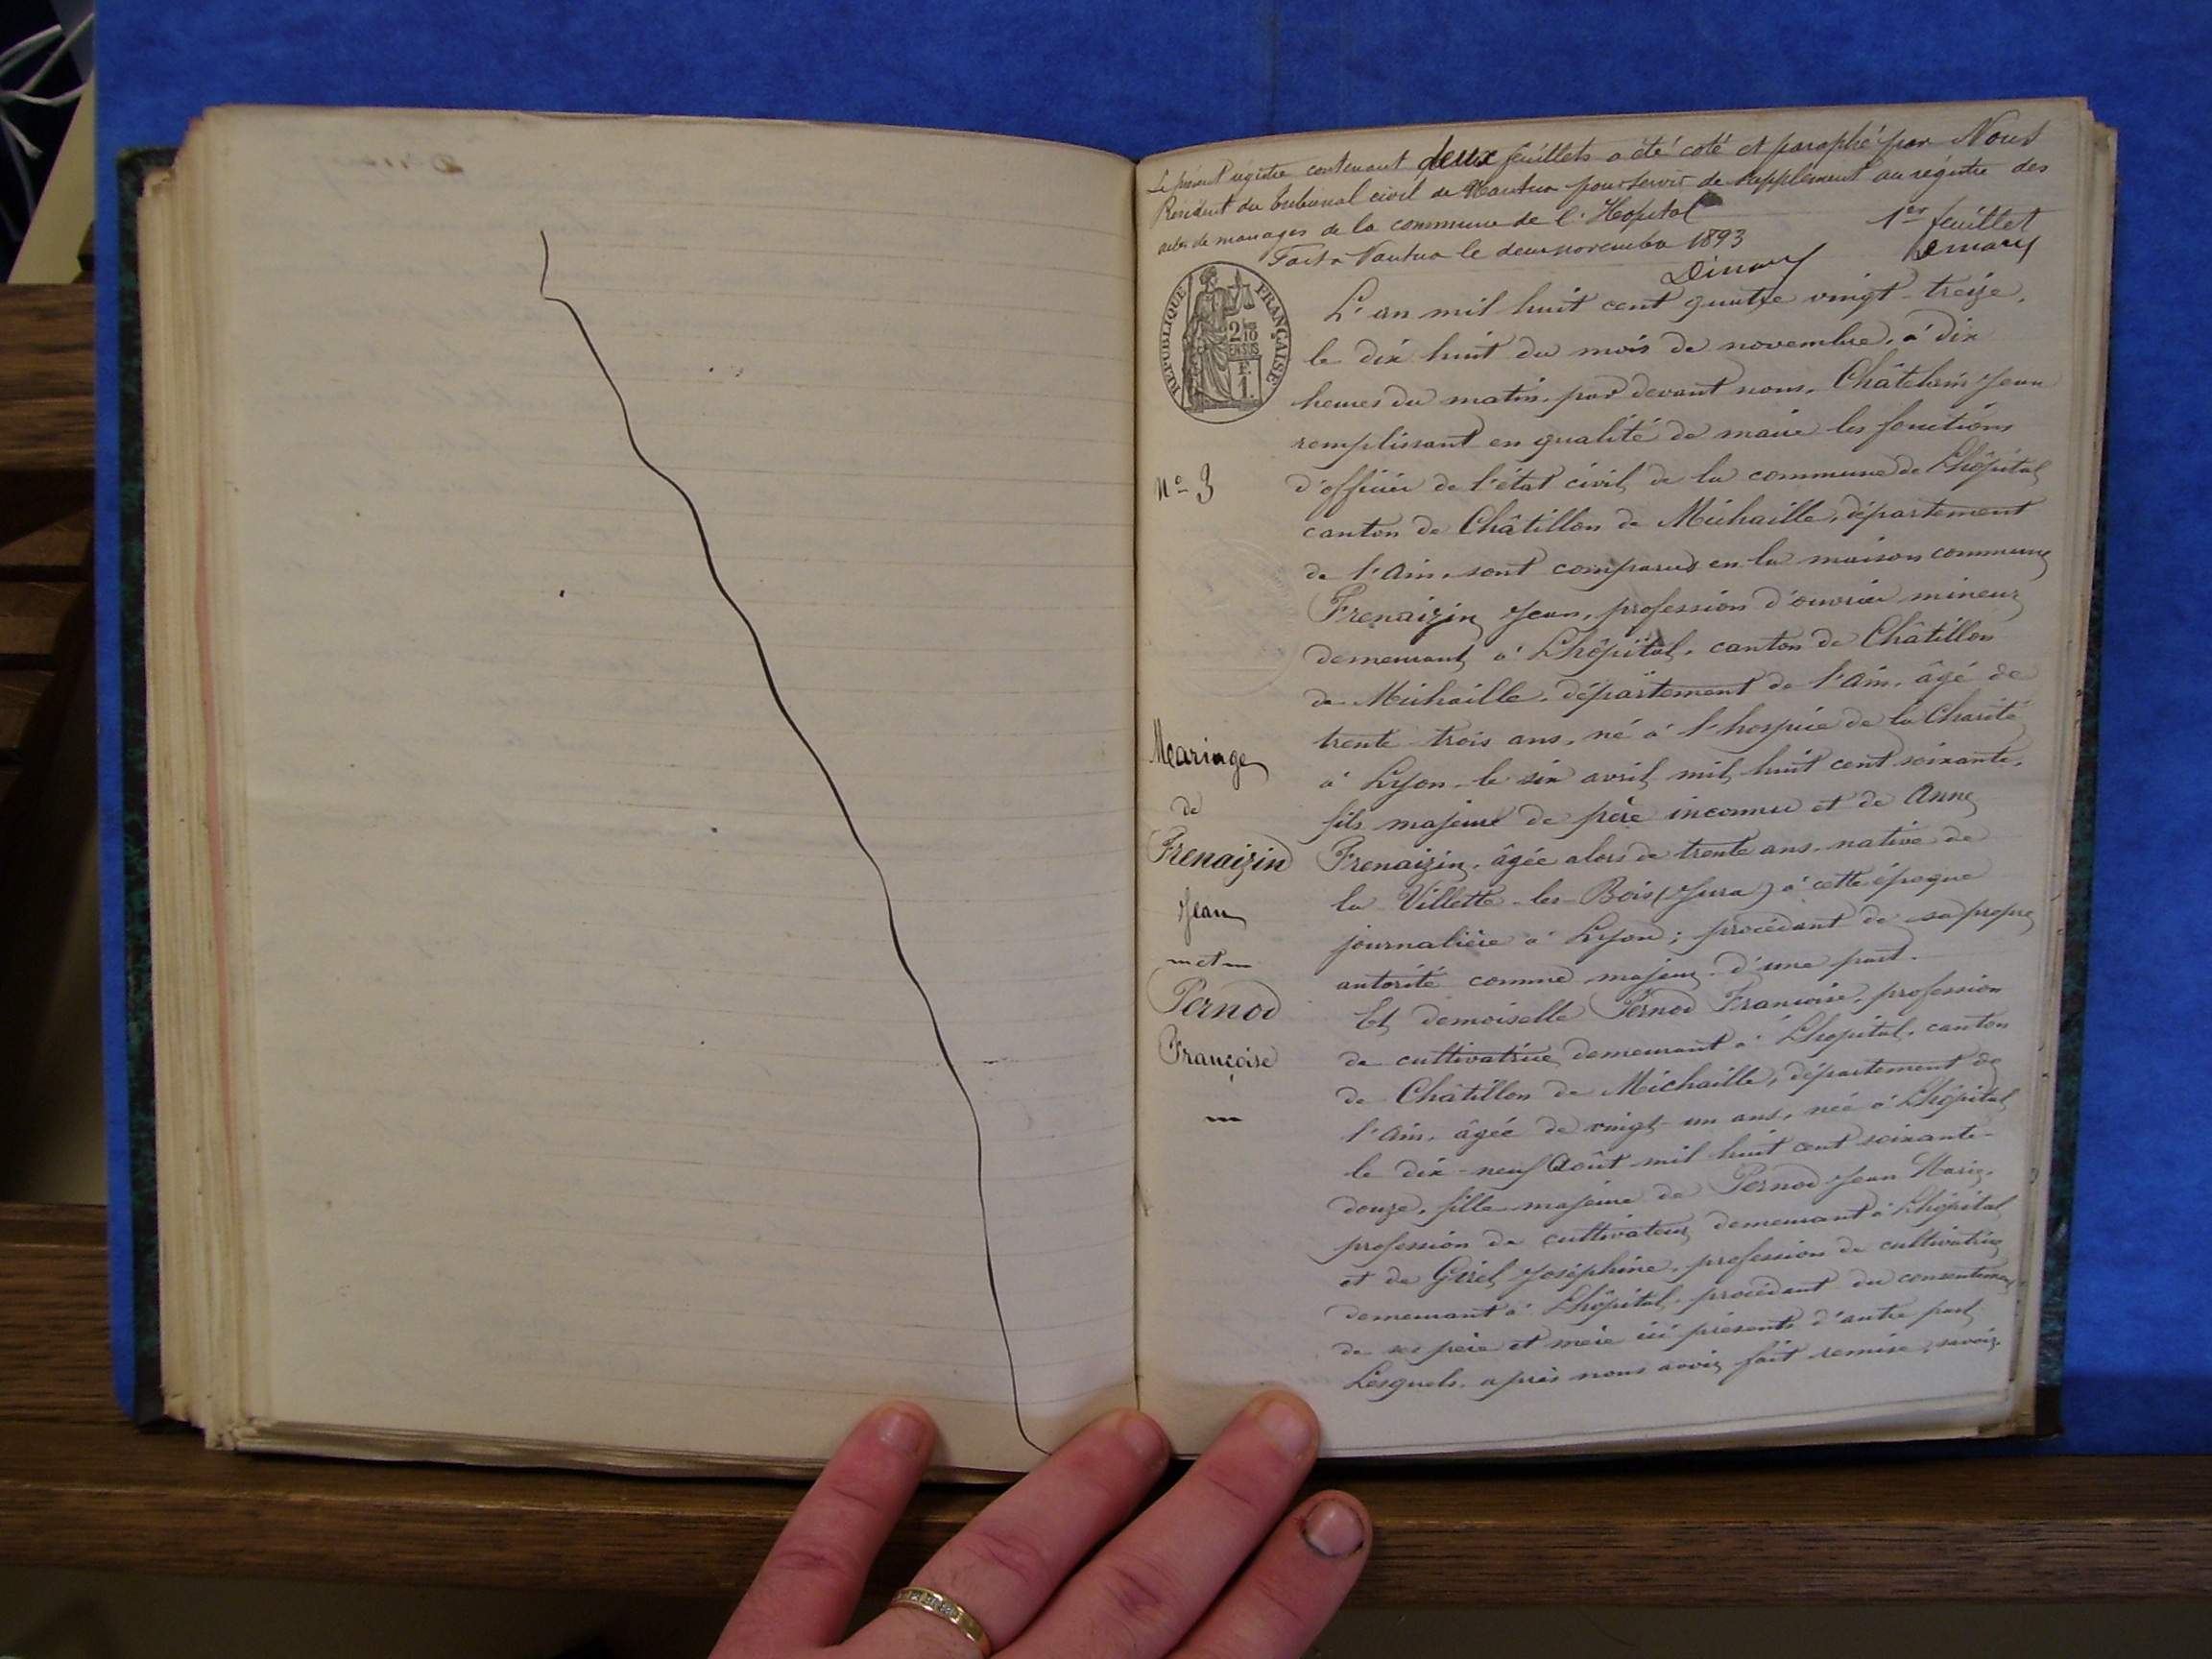 Le présent registre contenant deux feuillets a été coté et paraphé par Nous
Président du tribunal civil de Nantua pour servir de supplément au régistre des
actes de mariages de la commune de l'Hopital
1er feuillet
Fait à Nantua le deux novembre 1893
REPUBLIQUE FRANÇAISE
2/10
EN SUS
F.
1.
L'an mil huit cent quatre vingt-treize,
le dix huit du mois de novembre, à dix
heures du matin, par devant nous, Châtelain Jean
remplissant en qualité de maire les fonctions
Nº 3
d'officier de l'état civil de la commune de Lhôpital
canton de Châtillon de Michaille, département
de l'Ain, sont comparus en la maison commune
Frenaizin Jean, profession d'ouvrier mineur
demeurant à Lhôpital, canton de Châtillon
de Michaille, département de l'Ain, âgé de
trente trois ans, né à l'hospice de la Charité
à Lyon le six avril mil huit cent soixante,
fils majeur de père inconnu et de Anne
Frenaizin, âgée alors de trente ans, native de
la Villette-les-Bois (Jura) à cette époque
journalière à Lyon; procédant de sa propre
autorité comme majeur d'une part.
Mariage
de
Frenaizin
Jean
et
Pernod
Françoise
Et demoiselle Pernod Francoise, profession
de cultivatrice demeurant à Lhopital, canton
de Châtillon de Michaille, département de
l'Ain, âgée de vingt-un ans, née à Lhôpital
le dix-neuf Août mil huit cent soixante-
douze, fille majeure de Pernod Jean Marie,
profession de cultivateur demeurant à Lhôpital
et de Girel Joséphine, profession de cultivatrice
demeurant à Lhôpital, procédant du consentement
de ses père et mère ici présents d'autre part
Lesquels, après nous avoir fait remise, savoir